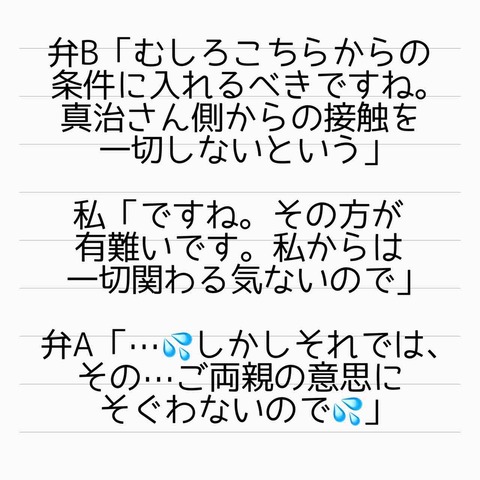 弁B「むしろこちらからの
条件に入れるべきですね。
真治さん側からの接触を
一切しないという」
私「ですね。その方が
有難いです。私からは
一切関わる気ないので」
弁A「…💦しかしそれでは、
その…ご両親の意思に
そぐわないので💦」